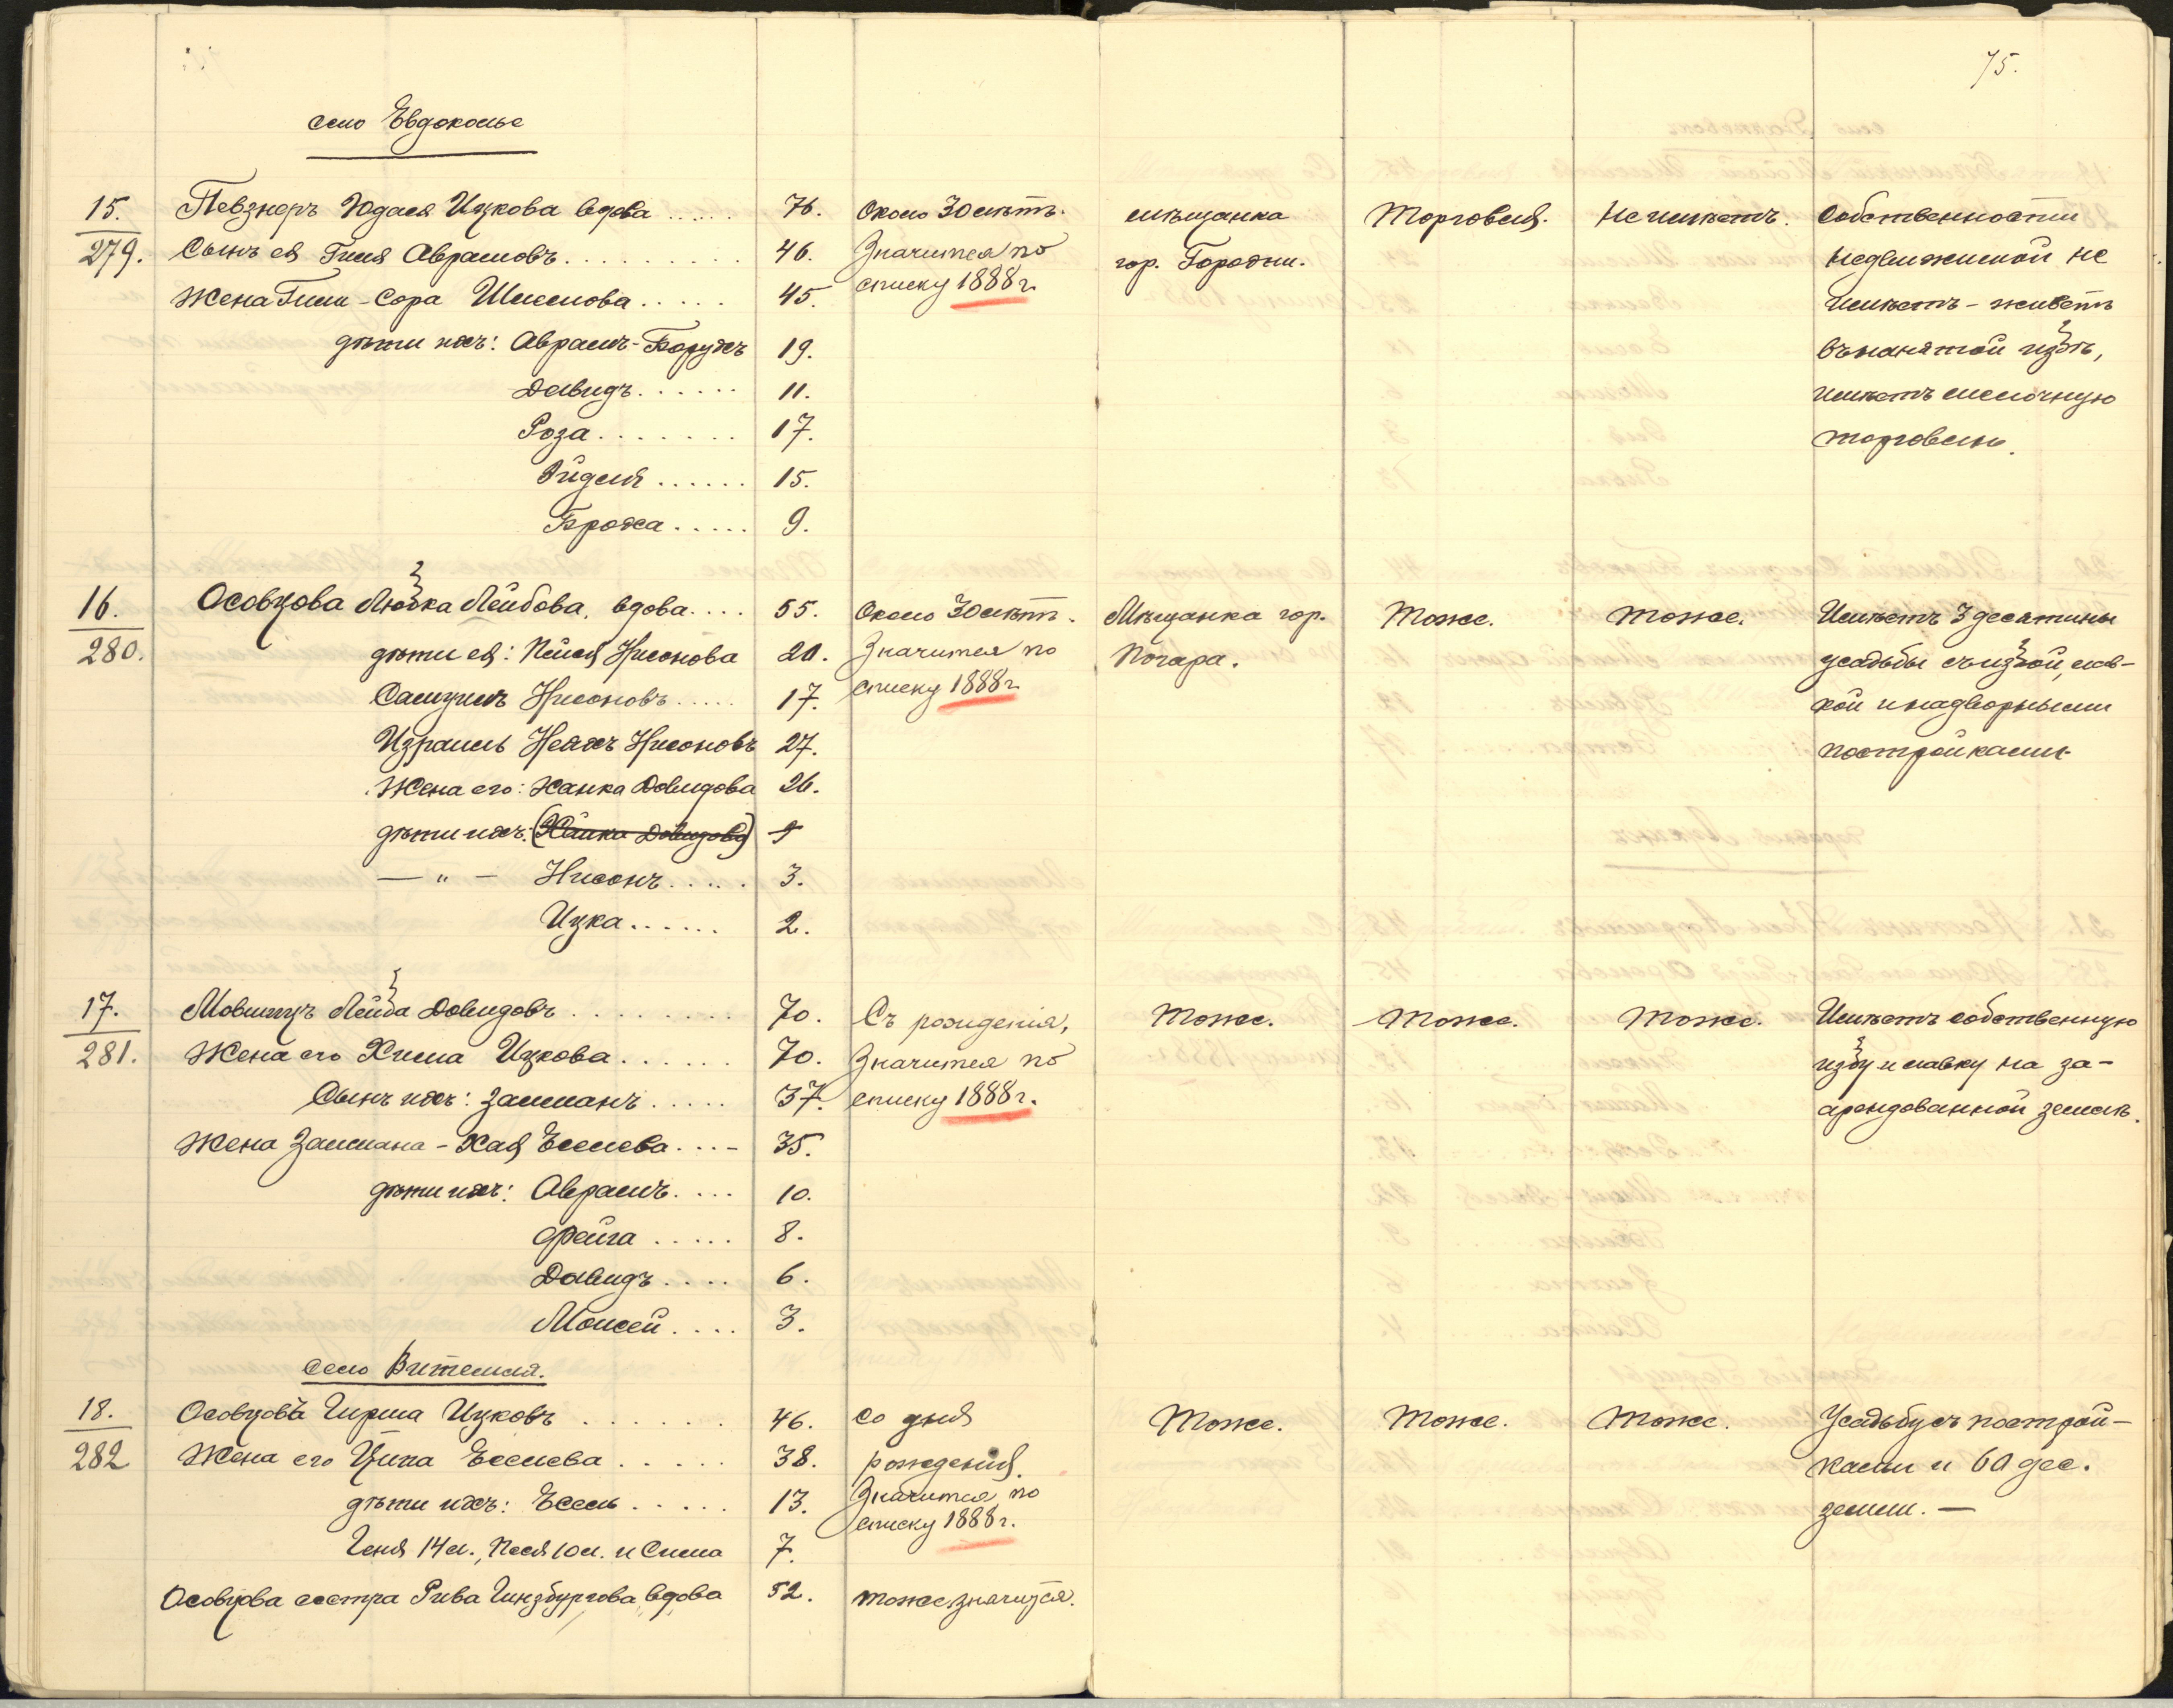 75.
село Евдоколье
15. Певзнеръ Юдася Ицкова вдова ..... 76. Около 30 лѣтъ. мѣщанка Торговля. Не имѣетъ. Собственности
279. Сынъ ея Гиля Абрамовъ ......... 46. Значится по гор. Городни. недвижимой не
Жена Гили - Сора Шлемова ..... 45. списку 1888 г. имѣетъ - живетъ
дѣти ихъ: Абрамъ-Борухъ 19. въ нанятой избѣ,
Давидъ ...... 11. имѣетъ мелочную
Роза ....... 17. торговлю.
Эйдля ...... 15.
Броха ..... 9.
16. Осовцова Любка Лейбова, вдова .... 55. Около 30 лѣтъ. Мѣщанка гор. Тоже. Тоже. Имѣетъ 3 десятины
280. дѣти ея: Пейся Нисонова 20. Значится по Погара. усадьбы съ избой, лав-
Самуилъ Нисоновъ ..... 17. списку 1888 г. кой и надворными
Израиль Неяхъ Нисоновъ 27. постройками
Жена его: Ханка Довидова 26.
дѣти ихъ: (Ханка Довидова) 9
— " — Нисонъ ..... 3.
Ицка ...... 2.
17. Мовшицъ Лейба Довидовъ ........ 70. Съ рожденія, Тоже. Тоже. Тоже. Имѣетъ собственную
281. Жена его Хима Ицкова ...... 70. Значится по избу и лавку на за-
Сынъ ихъ: Залманъ ..... 37. списку 1888 г. арендованной землѣ.
Жена Залмана - Хая Еселева ...- 35.
дѣти ихъ: Абрамъ .... 10.
Фейга ..... 8.
Давидъ .... 6.
Моисей .... 3.
село Витемля.
18. Осовцовъ Гирша Ицковъ ....... 46. Со дня Тоже. Тоже. Тоже. Усадьбу съ построй-
282 Жена его Ципа Еселева ..... 38. рожденія. ками и 60 дес.
дѣти ихъ: Есель ..... 13. Значится по земли. —
Геня 14 л., Песя 10 л. и Сима 7. списку 1888 г.
Осовцова сестра Рива Гинзбургова, вдова 52. тоже значится.